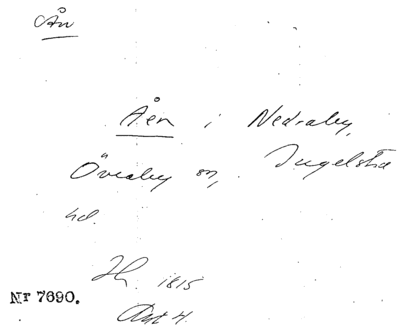 Ån
Åen i Nedraby,
Övraby sn, Ingelsta
hd.
1815
Nr 7690.